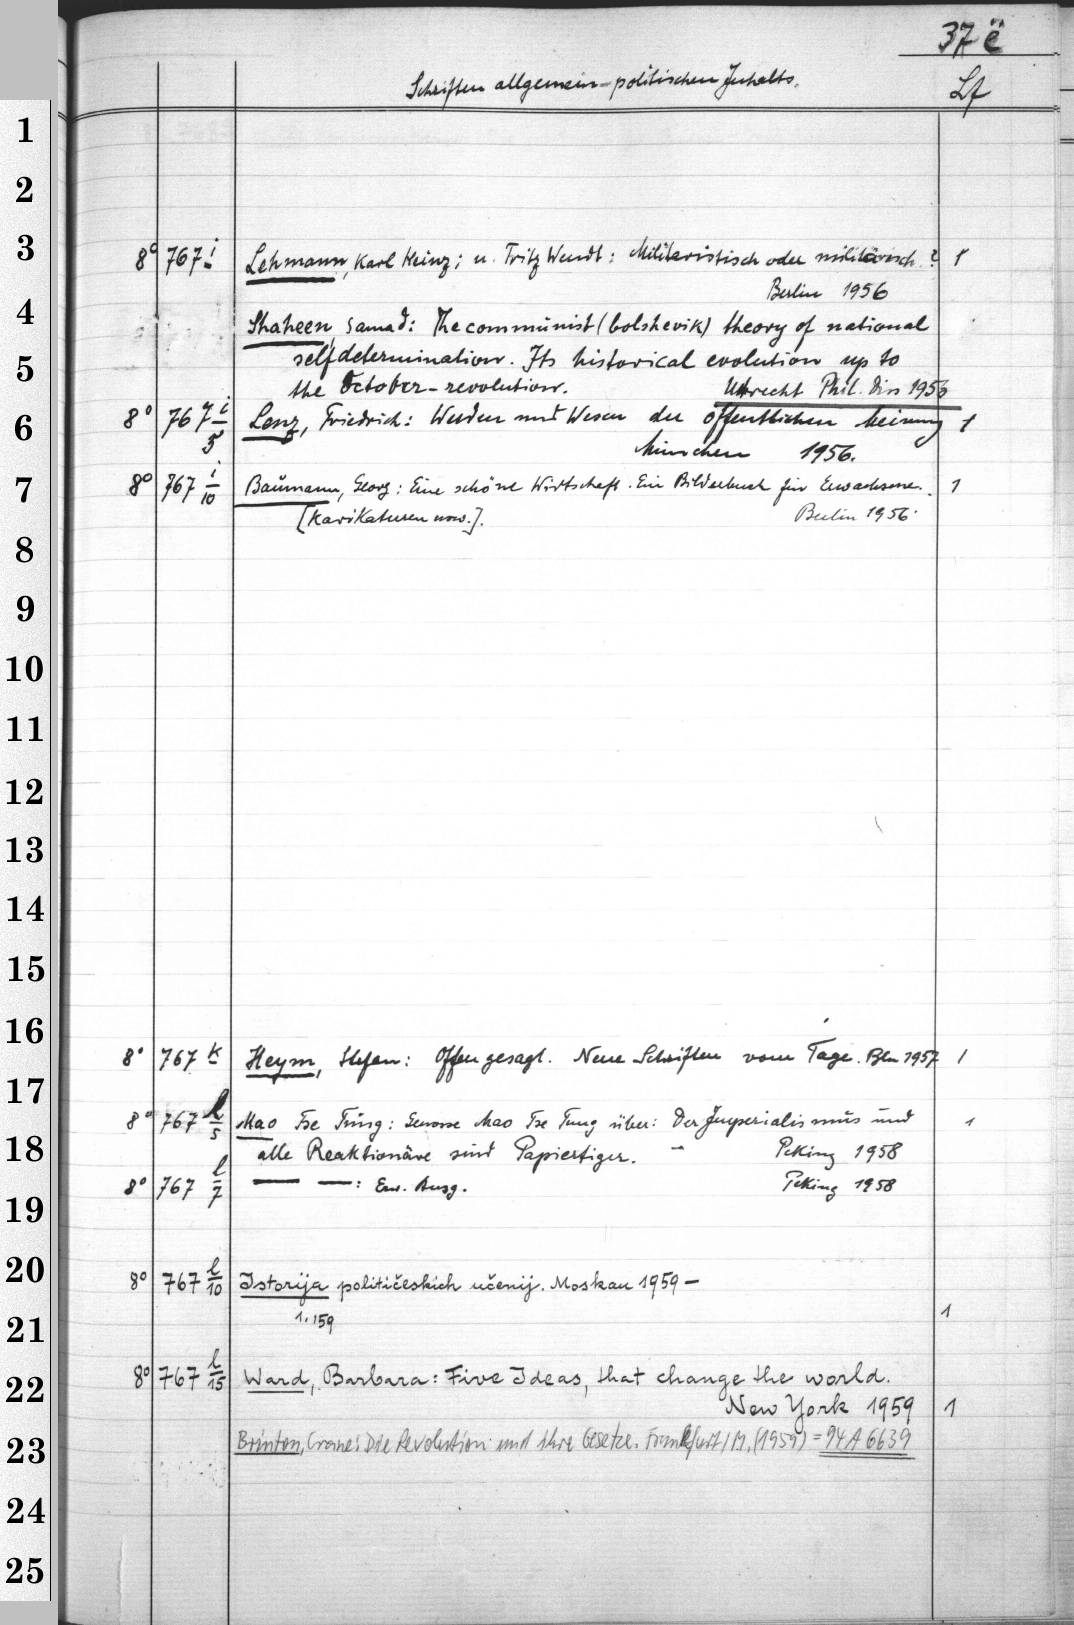 37 ë
Schriften allgemein-politischen Inhalts.
Lf
1
2
3
8° 767 i Lehmann, Karl Heinz; u. Fritz Wendt: Militaristisch oder militärisch? 1
Berlin 1956
4
Shaheen, Samad: The communist (bolshevik) theory of national
5
selfdetermination. Its historical evolution up to
the October-revolution. Utrecht Phil. Diss 1956
6
8° 767 i/5 Lenz, Friedrich: Werden und Wesen der öffentlichen Meinung 1
München 1956.
7
8° 767 i/10 Baumann, Georg: Eine schöne Wirtschaft. Ein Bilderbuch für Erwachsene. 1
[Karikaturen usw.]. Berlin 1956.
8
9
10
11
12
13
14
15
16
8° 767 k Heym, Stefan: Offen gesagt. Neue Schriften vom Tage. Bln 1957 1
17
8° 767 l/5 Mao Tse Tung: Genosse Mao Tse Tung über: Der Imperialismus und 1
18
alle Reaktionäre sind Papiertiger. – Peking 1958
8° 767 l/7 — — : En. Ausg. Peking 1958
19
20
8° 767 l/10 Istorija političeskich učenij. Moskau 1959 –
1. 159 1
21
22
8° 767 l/15 Ward, Barbara: Five Ideas, that change the world.
New York 1959 1
23
Brinton, Crane: Die Revolution und ihre Gesetze. Frankfurt/M. (1959) = 94 A 6639
24
25